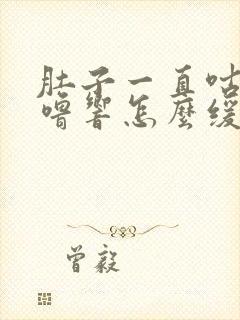 肚子一直咕
嚕響怎麼緩
曾毅